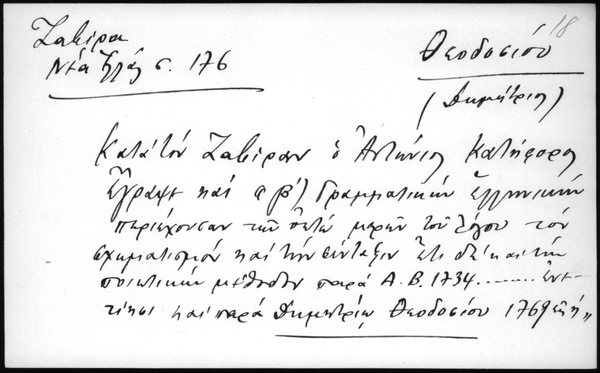 Ζαβίρα
Νέα Ἑλλάς σ. 176
18
Θεοδοσίου
(Δημήτριος)
Κατὰ τὸν Ζαβίραν ὁ Ἀντώνιος Κατήφορος
ἔγραψε καὶ α β') Γραμματικὴν Ἑλληνικὴν
περιέχουσαν τῶν ὀκτὼ μερῶν τοῦ λόγου τὸν
σχηματισμὸν καὶ τὴν σύνταξιν ἔτι δὲ καὶ τὴν
ποιητικὴν μέθοδον παρὰ Α. Β. 1734........ ἐν
καὶ παρὰ Δημητρίῳ Θεοδοσίου 1769